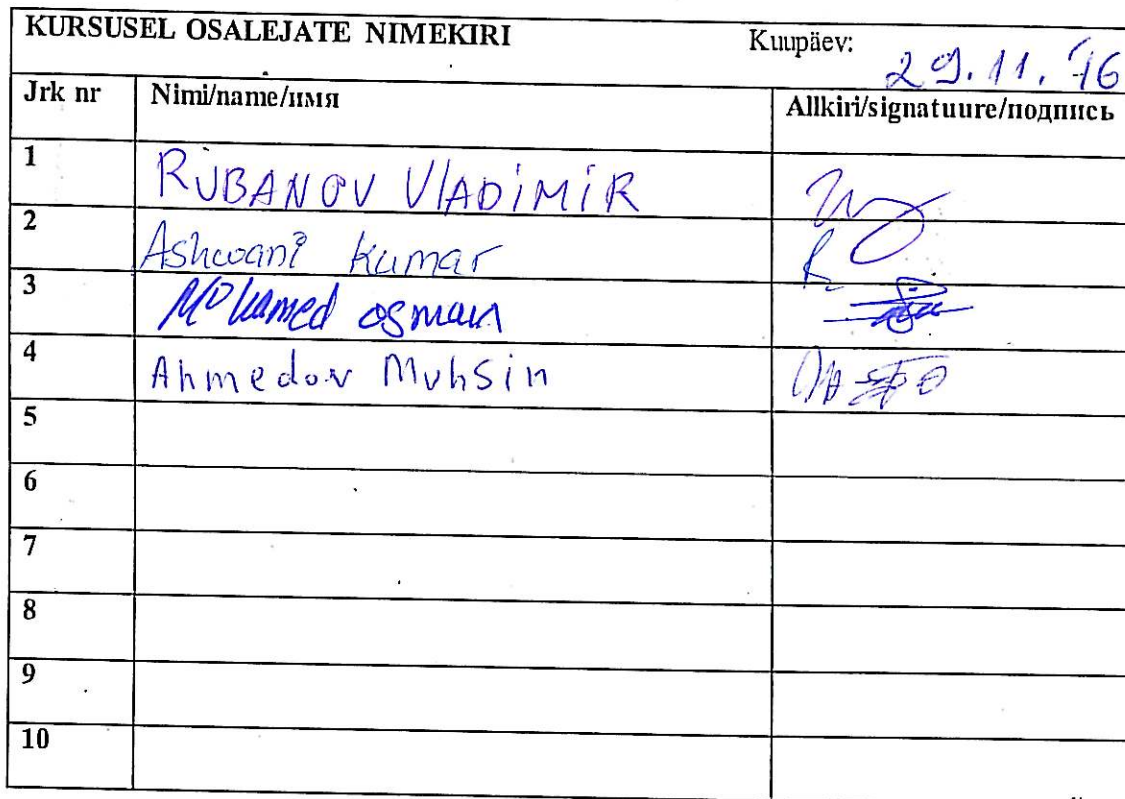 KURSUSEL OSALEJATE NIMEKIRI Kuupäev: 29.11.'16
Jrk nr Nimi/name/имя Allkiri/signatuure/подпись
1 RUBANOV VlADiMiR
2 Ashwani Kumar
3 Mohamed osman
4 Ahmedov Muhsin
5
6
7
8
9
10